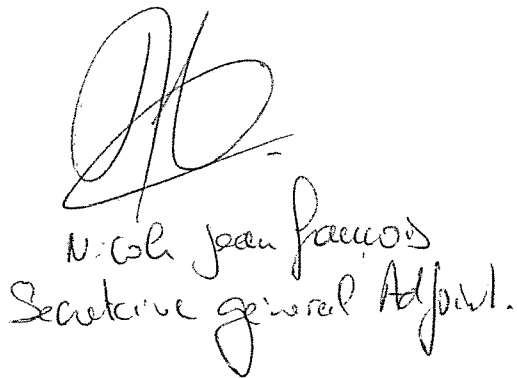 Nicoli Jean François
Secretaire général Adjoint.